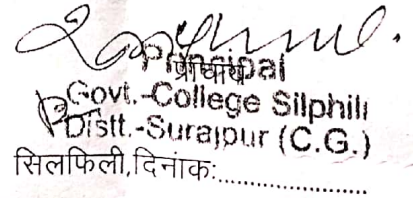 Principal
प्राचार्य
Govt.-College Silphili
Distt.-Surajpur (C.G.)
सिलफिली,दिनांक:........................